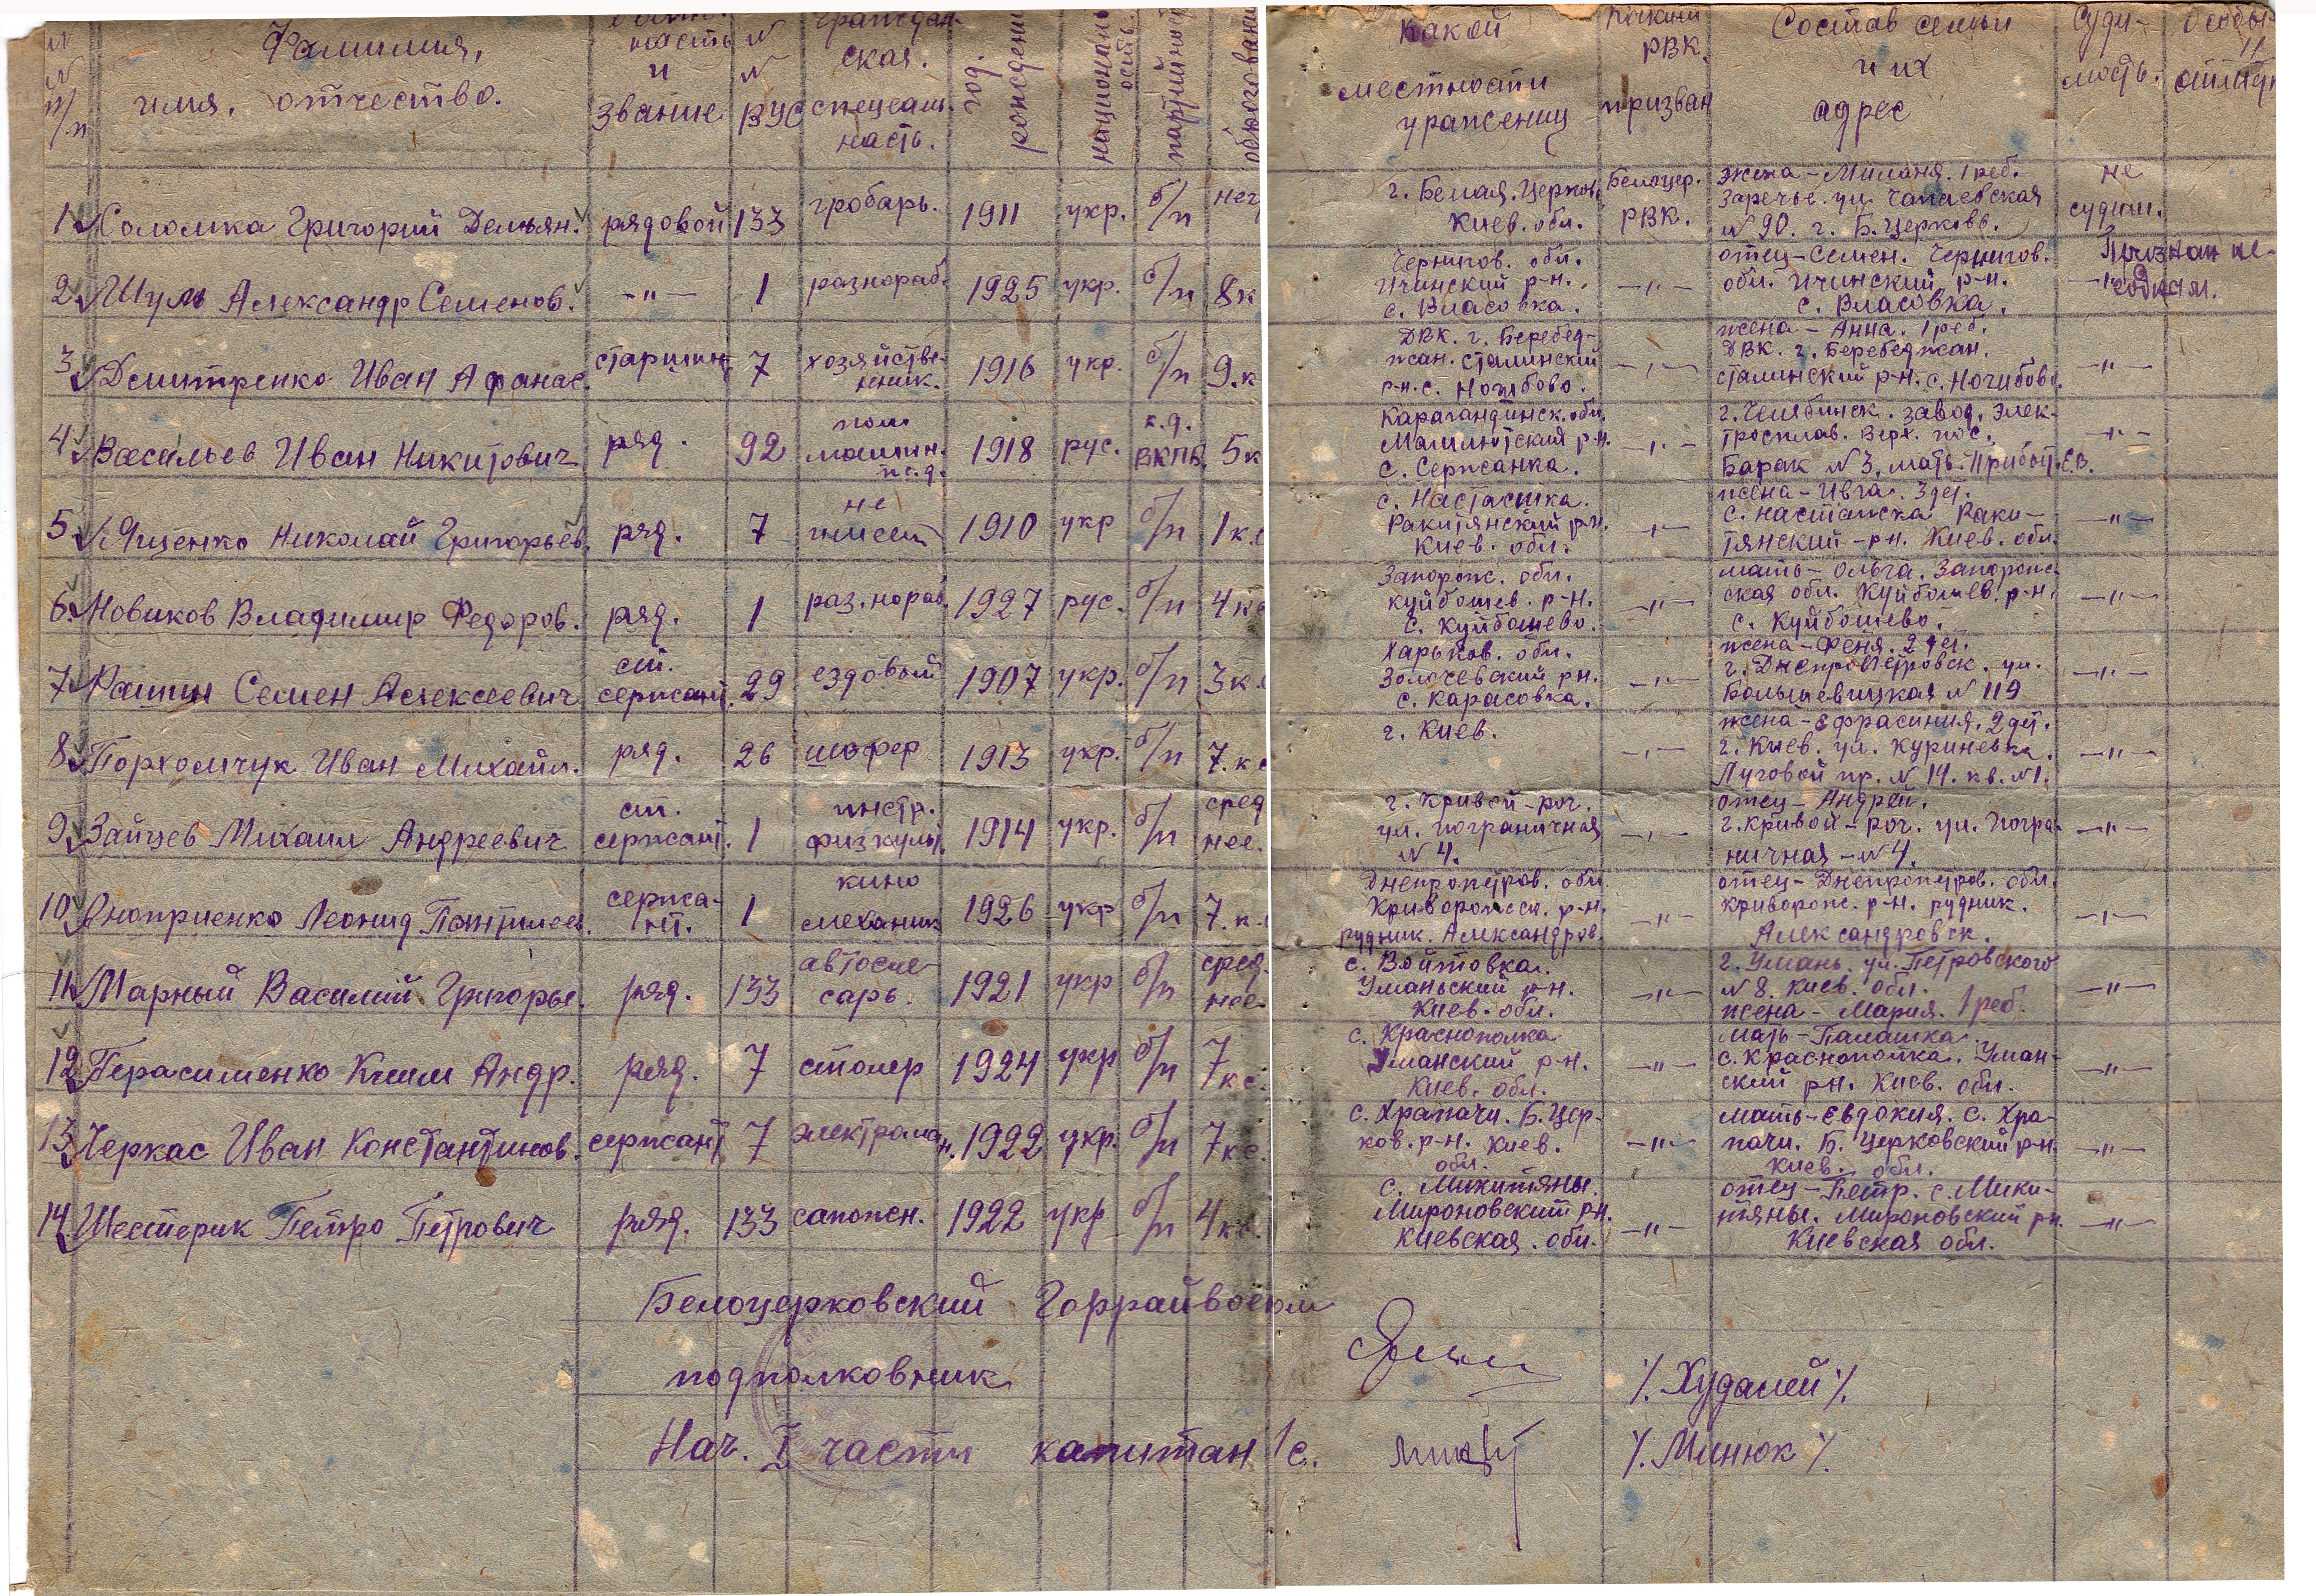 № Фамилия, имя, отчество. и звание № ВУС граждан- ская. специаль- ность. год рождения национальность партийность образование Какой местности уроженец Каким РВК. призван Состав семьи и их адрес Суди- мость. Особые
1 Соломка Григорий Демьян. рядовой 133 гробарь. 1911 укр. б/п
г. Белая-Церков. Киев. обл. Белоцер. РВК. жена - Миланя. 1 реб. Заречье. ул. Чапаевская № 90. г. Б. Церковь. не судим.
2 Шуль Александр Семенов. -"- 1 разнораб. 1925 укр. б/п 8 к
Чернигов. обл. Ичинский р-н. с. Власовка. -"- отец - Семен. Чернигов. обл. Ичинский р-н. с. Власовка. -"- Признан не-
3 Дмитренко Иван Афанас. старшин. 7 хозяйстве- нник. 1916 укр. б/п 9.к
ДВК. г. Беребед- жан. Сталинский р-н. с. -"- жена - Анна. 1 реб. ДВК. г. Беребеджан. Сталинский р-н. с. -"-
4 Васильев Иван Никитович ряд. 92 пом машин. п.д. 1918 рус. к.д. ВКПБ. 5 к
Карагандинск. обл. р-н. с. Сержанка. -"- г. Челябинск. завод. Элек- тросплав. Верх. пос. Барак № 3. мать - -"-
5 Яценко Николай Григорьев. ряд. 7 не имеет 1910 укр б/п 1 к.
с. Насташка. Ракитянский р-н. Киев. обл. -"- жена - Ивга. 3 дет. с. Насташка Раки- тянский - р-н. Киев. обл. -"-
6. Новиков Владимир Федоров. ряд. 1 раз.нораб. 1927 рус. б/п 4 кл
Запорож. обл. Куйбошев. р-н. с. Куйбошево. -"- мать - Ольга. Запорож- ская обл. Куйбошев. р-н. с. Куйбошево. -"-
7. Рашин Семен Алексеевич ст. сержант. 29 ездовый 1907 укр. б/п 3 к.
Харьков. обл. Золочевский р-н. с. Карасовка. -"- жена - Феня. 2 дет. г. Днепропетровск. ул. Большевицкая № 119 -"-
8. Порхомчук Иван Михайл. ряд. 26 шофер 1913 укр. б/п 7. к
г. Киев. -"- жена - Ефрасиния. 2 дет. г. Киев. ул. Куриневка. Луговой пр. № 14. кв. №1. -"-
9. Зайцев Михаил Андреевич ст. сержант. 1 инстр. физкульт. 1914 укр. б/п сред нее.
г. Кривой-рог. ул. Пограничная № 4. -"- отец - Андрей. г. Кривой-рог. ул. Погра- ничная - № 4. -"-
10. Оноприенко Леонид Пантилеев. сержа- нт. 1 кино механик 1926 укр б/п 7. к.
Днепропетров. обл. Криворожск. р-н. рудник. Александров. -"- отец - Днепропетров. обл. Криворож. р-н. рудник. Александровск. -"-
11. Марный Василий Григорье. ряд. 133 автосле- сарь. 1921 укр б/п сред. нее
с. Войтовка. Уманьский р-н. Киев. обл. -"- г. Умань. ул. Петровского № 8. Киев. обл. жена - Мария. 1 реб. -"-
12. Герасименко Ким Андр. ряд. 7 столер 1924 укр б/п 7 кл.
с. Краснополка Уманский р-н. Киев. обл. -"- мать - Палашка с. Краснополка. Уман- ский р-н. Киев. обл. -"-
13. Черкас Иван Константинов. сержант 7 электромон. 1922 укр. б/п 7 кл.
с. Храпачи. Б. Цер- ков. р-н. Киев. обл. -"- мать - Евдокия. с. Хра- пачи. Б. Церковский р-н. Киев. обл. -"-
14. Шестерик Петро Петрович ряд. 133 сапожн. 1922 укр б/п 4 кл.
с. Микитяны. Мироновский р-н. Киевская. обл. -"- отец - Петр. с. Мики- тяны. Мироновский р-н. Киевская обл. -"-
Белоцерковский Горрайвоенком
подполковник /. Худалей /.
Нач. I части капитан /с. /. Минюк /.